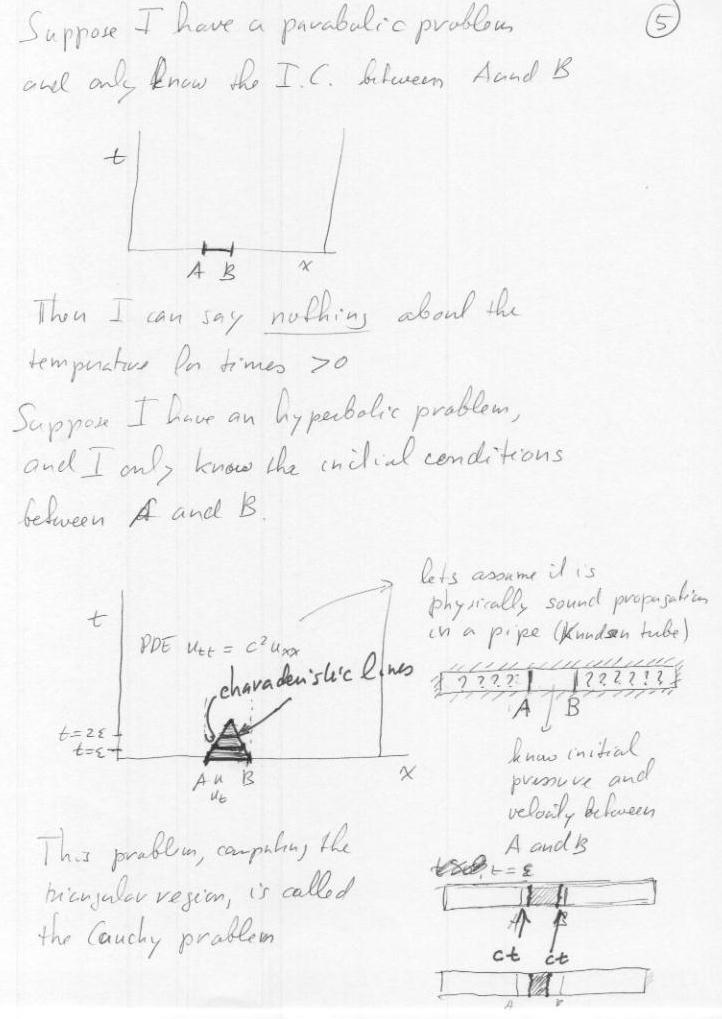 Suppose I have a parabolic problem
⑤
and only know the I.C. between A and B
t
A B x
Then I can say nothing about the
temperature for times >0
Suppose I have an hyperbolic problem,
and I only know the initial conditions
between A and B.
lets assume it is
physically sound propagation
in a pipe (Kundsen tube)
t
PDE u_tt = c² u_xx
characteristic lines
t=2ε
t=ε
A u B x
u_t
???? ??????
A B
know initial
pressure and
velocity between
A and B
This problem, computing the
triangular region, is called
the Cauchy problem
t=ε
A B
ct ct
A B